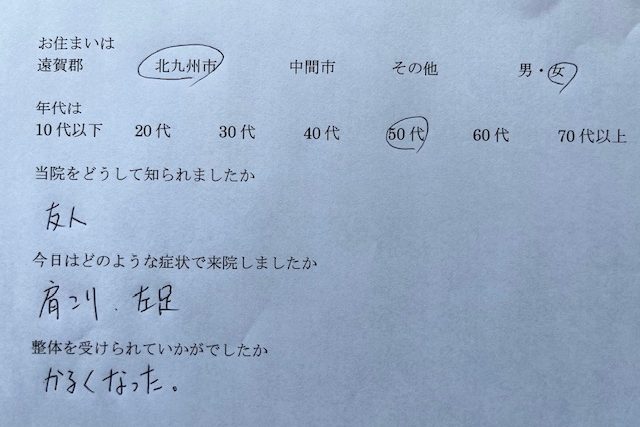 お住まいは
遠賀郡 北九州市 中間市 その他 男・女
年代は
10代以下 20代 30代 40代 50代 60代 70代以上
当院をどうして知られましたか
友人
今日はどのような症状で来院しましたか
肩こり、左足
整体を受けられていかがでしたか
かるくなった。